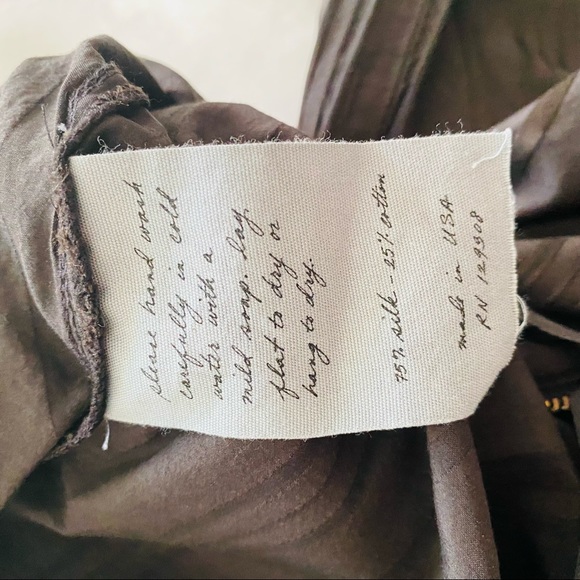 please hand wash
carefully in cold
water with a
mild soap. lay
flat to dry or
hang to dry.
75% silk - 25% cotton
made in USA
RN 129308